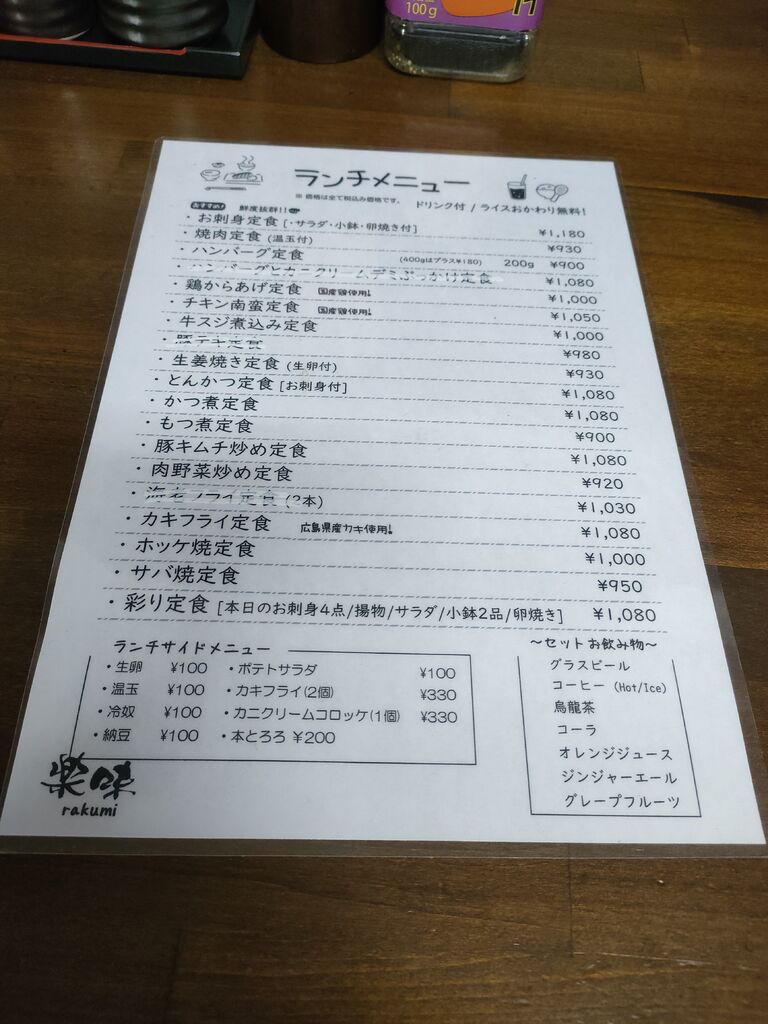 100g
ランチメニュー
※ 価格は全て税込み価格です。 ドリンク付 / ライスおかわり無料!
おすすめ! 鮮度抜群!!
・お刺身定食 [・サラダ・小鉢・卵焼き付] ¥1,180
・焼肉定食 (温玉付) ¥930
・ハンバーグ定食 (400gはプラス¥180) 200g ¥900
・ハンバーグとカニクリームデミぶっかけ定食 ¥1,080
・鶏からあげ定食 国産鶏使用! ¥1,000
・チキン南蛮定食 国産鶏使用! ¥1,050
・牛スジ煮込み定食 ¥1,000
・豚テキ定食 ¥980
・生姜焼き定食 (生卵付) ¥930
・とんかつ定食 [お刺身付] ¥1,080
・かつ煮定食 ¥1,080
・もつ煮定食 ¥900
・豚キムチ炒め定食 ¥1,080
・肉野菜炒め定食 ¥920
・海老フライ定食 (2本) ¥1,030
・カキフライ定食 広島県産カキ使用! ¥1,080
・ホッケ焼定食 ¥1,000
・サバ焼定食 ¥950
・彩り定食 [本日のお刺身4点/揚物/サラダ/小鉢2品/卵焼き] ¥1,080
ランチサイドメニュー
・生卵 ¥100 ・ポテトサラダ ¥100
・温玉 ¥100 ・カキフライ(2個) ¥330
・冷奴 ¥100 ・カニクリームコロッケ(1個) ¥330
・納豆 ¥100 ・本とろろ ¥200
〜セットお飲み物〜
グラスビール
コーヒー (Hot/Ice)
烏龍茶
コーラ
オレンジジュース
ジンジャーエール
グレープフルーツ
楽味
rakumi